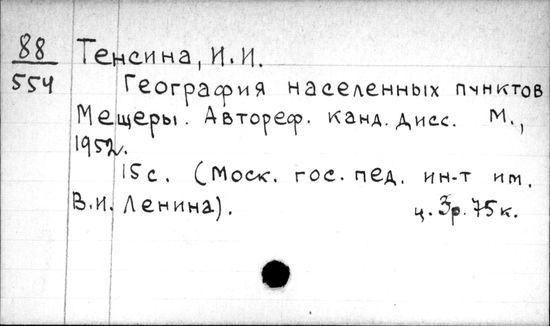 88 Тенсина, И.И.
554 География населенных пунктов
Мещеры. Автореф. канд. дисс. М.,
1952.
15 с. (Моск. гос. пед. ин-т им.
В.И. Ленина). ц. 3р. 75к.